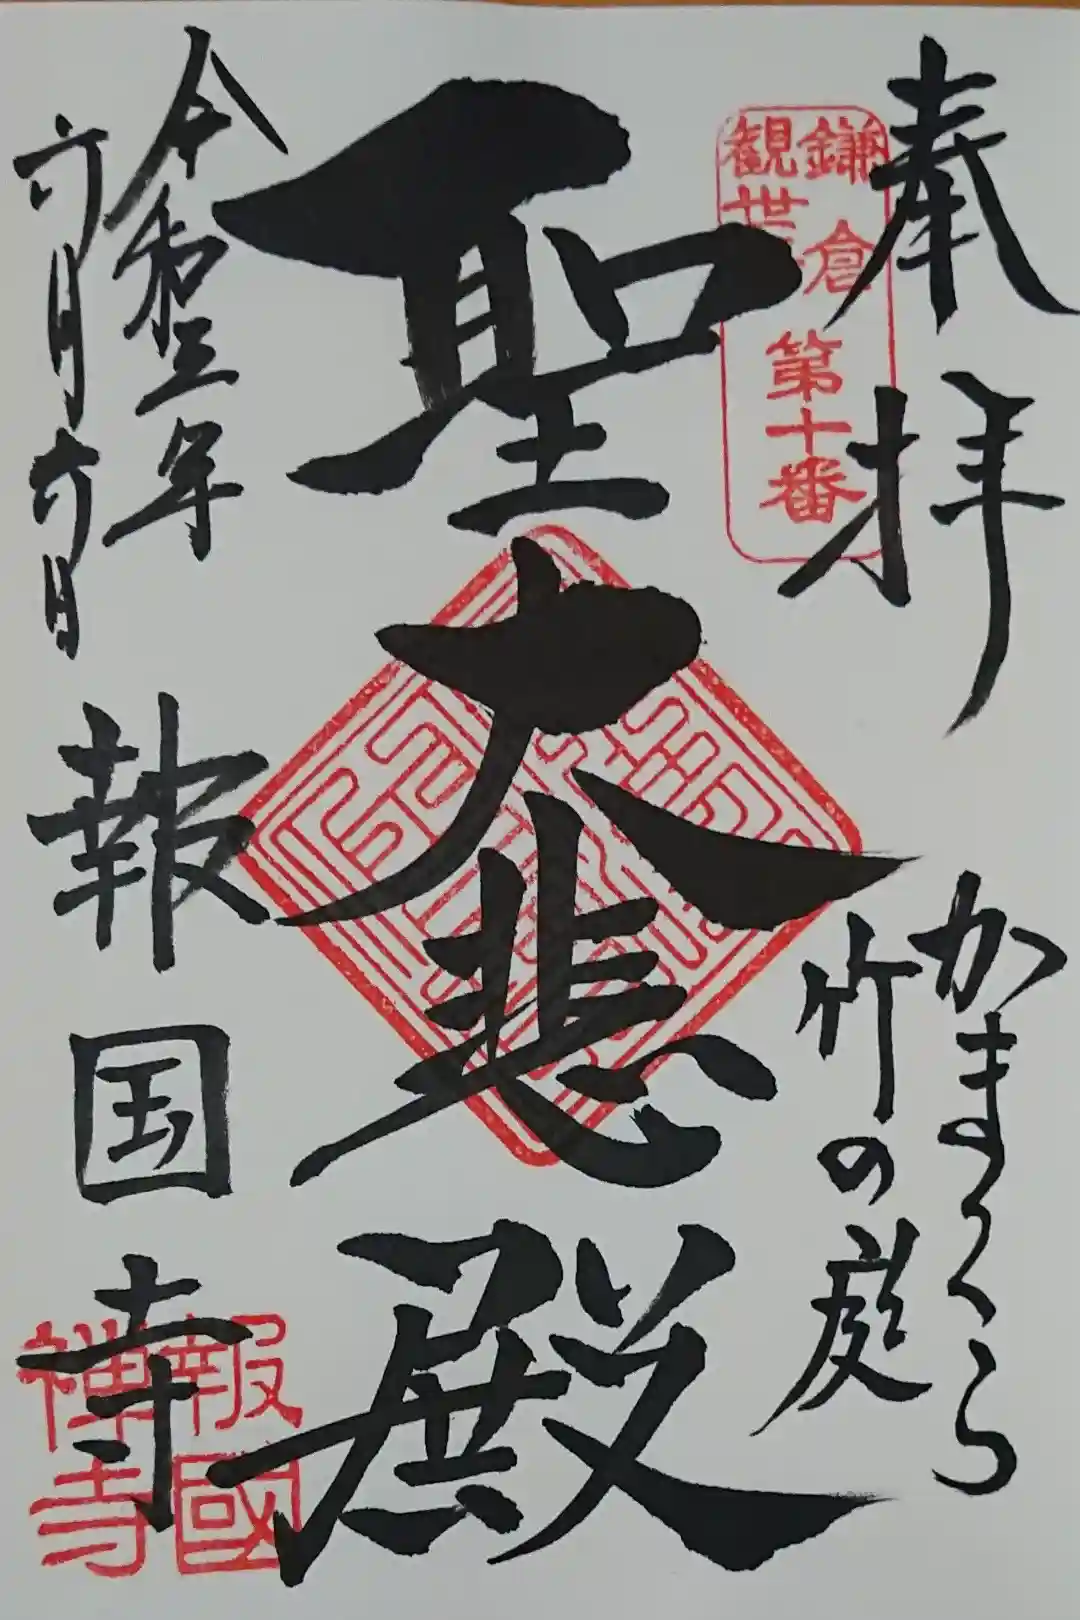 奉拝
かまくら
竹の庭
鎌倉
観世
第十番
聖大悲殿
令和三年
六月六日
報国寺
報國
禅寺